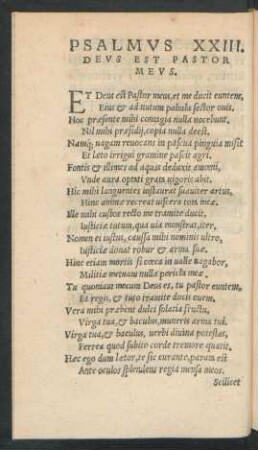 PSALMVS XXIII.
DEVS EST PASTOR
MEVS.
ET Deus est Pastor meus, et me ducit euntem,
Eius & ad nutum pabula sector ouis.
Hoc præsente mihi contagia nulla nocebunt,
Nil mihi præsidij, copia nulla deest.
Namq; uagam reuocans in pascua pinguia misit
Et læto irrigui gramine pascit agri.
Fontis & illimes ad aquas deduxit auenti,
Vnde aura optati grata uigoris abit.
Hic mihi languentes instaurat suauiter artus,
Hinc animæ recreat uiscera tota meæ.
Ille mihi custos recto me tramite ducit,
Iusticiæ tutum, qua uia monstrat, iter,
Nomen ei iustus, caussa mihi nominis ultro,
Iusticiæ donat robur & arma suæ.
Hinc etiam mortis si cæca in ualle uagabor,
Militiæ metuam nulla pericla meæ.
Tu quoniam mecum Deus es, tu pastor euntem,
Et regis, & tuto tramite ducis ouem.
Vera mihi præbent dulci solatia fructu,
Virga tua, & baculus, muneris arma tui.
Virga tua, & baculus, uerbi diuina potestas,
Ferrea quod subito corde tremore quatit.
Hæc ego dum lætor, te sic curante, param est
Ante oculos splendens regia mensa meos.
Scilicet